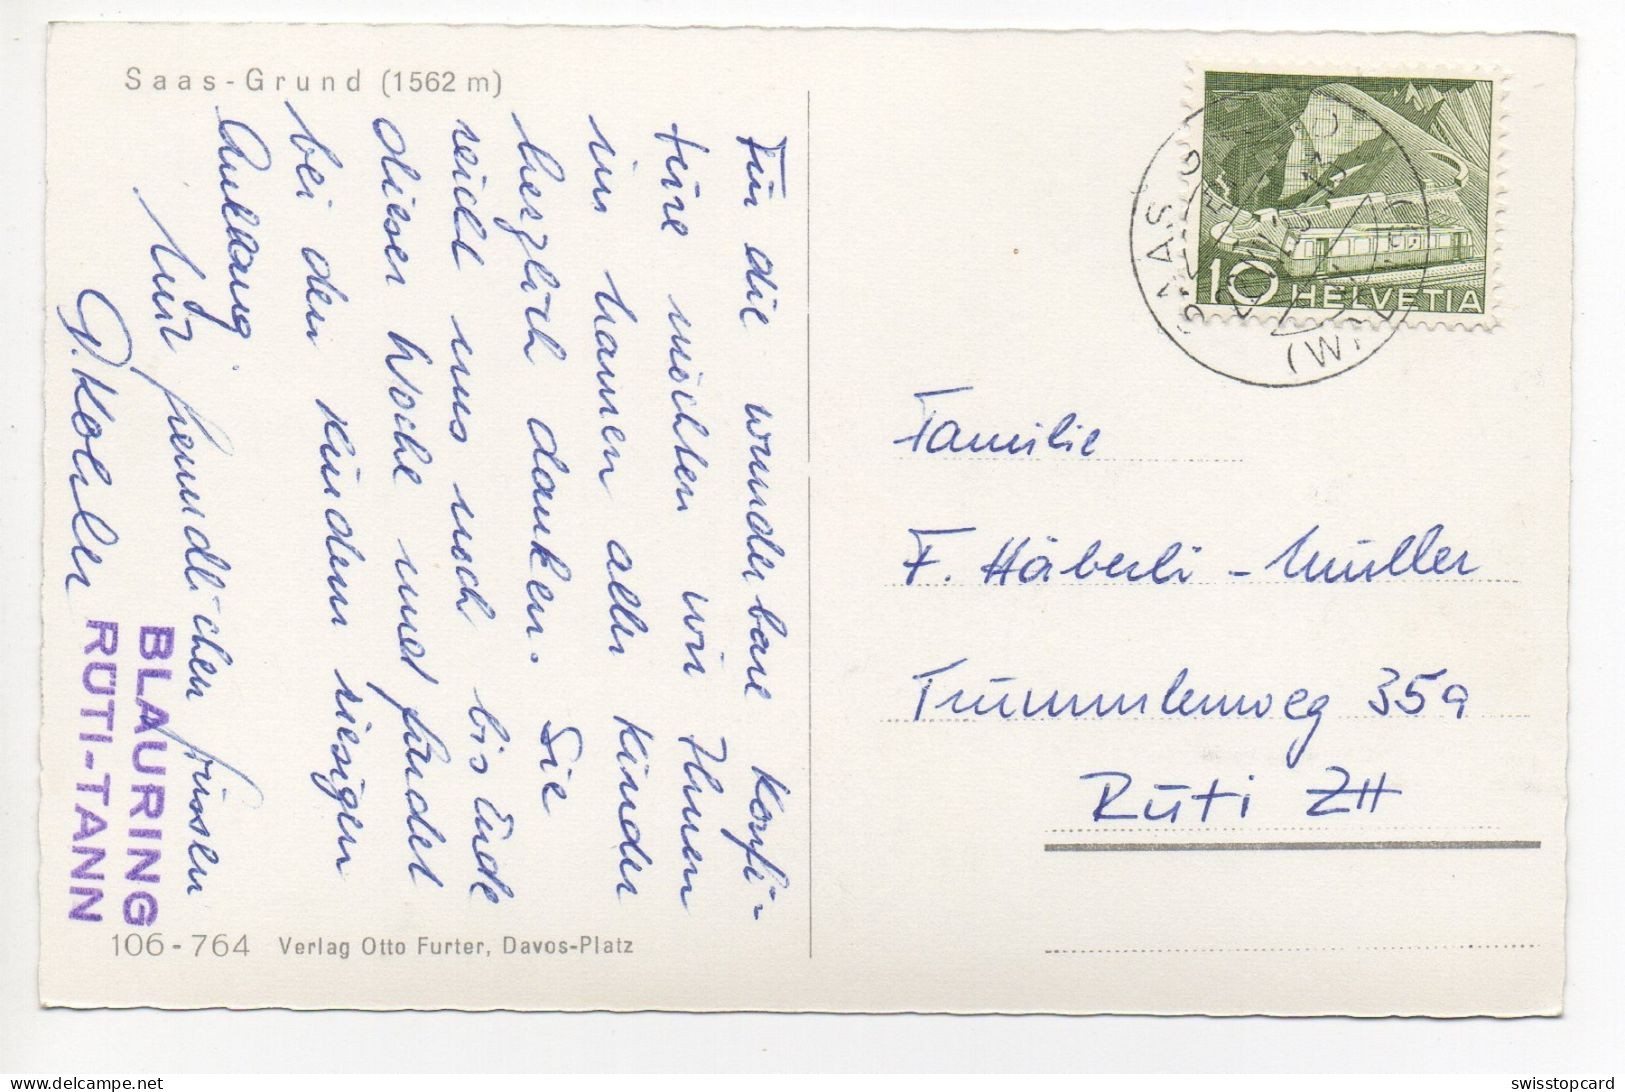 Saas-Grund (1562 m)
Für die wunderbare Konfi-
türe möchten wir Ihnen
im Namen aller Kinder
herzlich danken. Sie
reicht uns noch bis Ende
dieser Woche und findet
bei den Kindern riesigen
Anklang
Mit freundlichen Grüssen
P. Kohler
BLAURING
RÜTI-TANN
106-764 Verlag Otto Furter, Davos-Platz
SAAS
10 HELVETIA
Familie
F. Häberli-Müller
Trümmlenweg 35a
Rüti ZH
swisstopcard